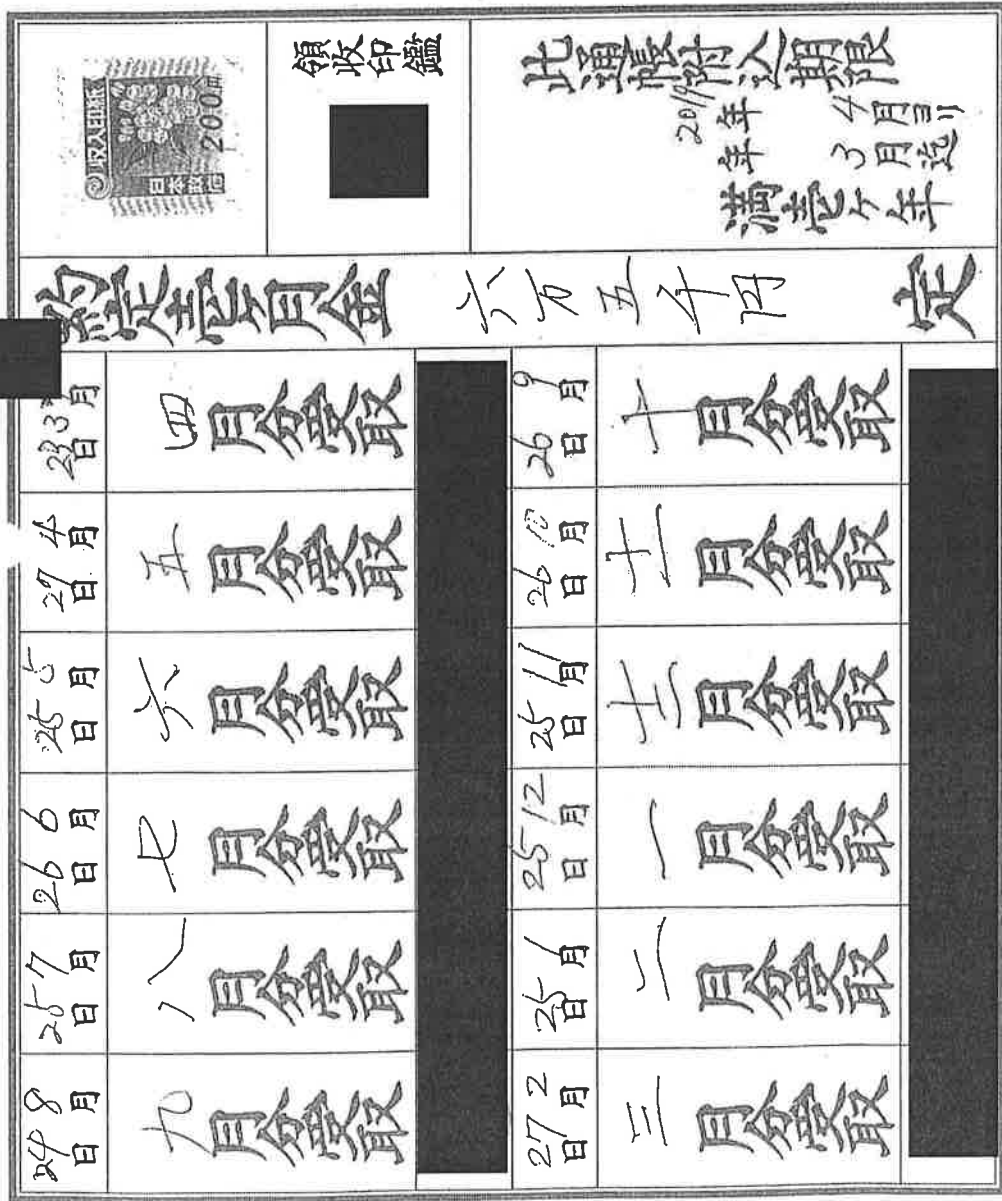 此通帳附込期限
2019年4月ヨリ
年3月迄
満壱ケ年
領收印鑑
収入印紙
200円
日本政府
約定壱ケ月金 六万五千円 定
3月 日
四月分受取
4月27日
五月分受取
5月25日
六月分受取
6月26日
七月分受取
7月25日
八月分受取
8月24日
九月分受取
9月26日
十月分受取
10月26日
十一月分受取
11月25日
十二月分受取
12月25日
一月分受取
1月25日
二月分受取
2月27日
三月分受取